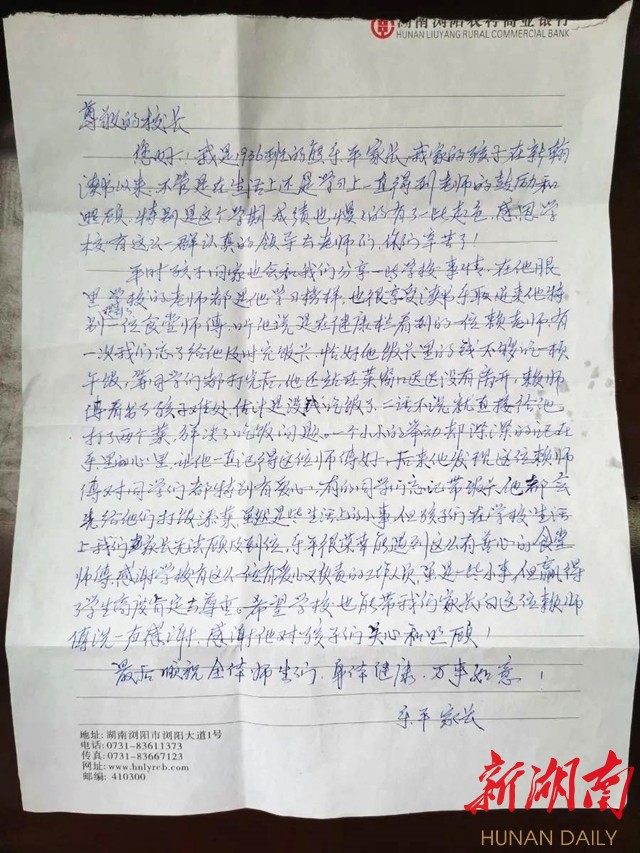 湖南浏阳农村商业银行
HUNAN LIUYANG RURAL COMMERCIAL BANK
尊敬的校长
您好！我是1936班的殷乐平家长，我家的孩子在新翰
读书以来，不管是在生活上还是学习上一直得到老师的鼓励和
照顾，特别是这个学期成绩也慢慢的有了一些起色，感恩学
校有这么一群认真的领导与老师们，你们辛苦了！
平时孩子回家也会和我们分享一些学校事情，在他眼
里学校的老师都是他学习榜样，也很享受读书乐取是来他特
别一位食堂师傅，听他说是在健康栏看到的一位赖老师，有
一次我们忘了给他及时充饭卡，恰好他饭卡里的钱不够吃一顿
午饭，等同学们都打完后，他还站在菜窗口迟迟没有离开，赖师
傅看出了孩子难处，估计是没钱吃饭了，二话不说就直接给他
打了两个菜，解决了吃饭问题。一个小小的举动都深深的记在
乐平的心里，让他一直记得这位师傅好，后来他发现这位赖师
傅对同学们都特别有爱心，有的同学们忘记带饭卡他都会
先给他们打饭添菜，虽然是些生活上的小事，但孩子们在学校生活
上我们家长无法顾及到位，乐平很荣幸能遇到这么有善心的食堂
师傅，感谢学校有这么一位有爱心又负责的工作人员，虽是一些小事，但赢得
了学生高度肯定与尊重。希望学校也能带我们家长向这位赖师
傅说一声感谢，感谢他对孩子们关心和照顾！
最后顺祝全体师生们，身体健康，万事如意！
乐平家长
地址：湖南浏阳市浏阳大道1号
电话：0731-83611373
传真：0731-83667123
网址：www.hnlyrcb.com
邮编：410300
新湖南
HUNAN DAILY